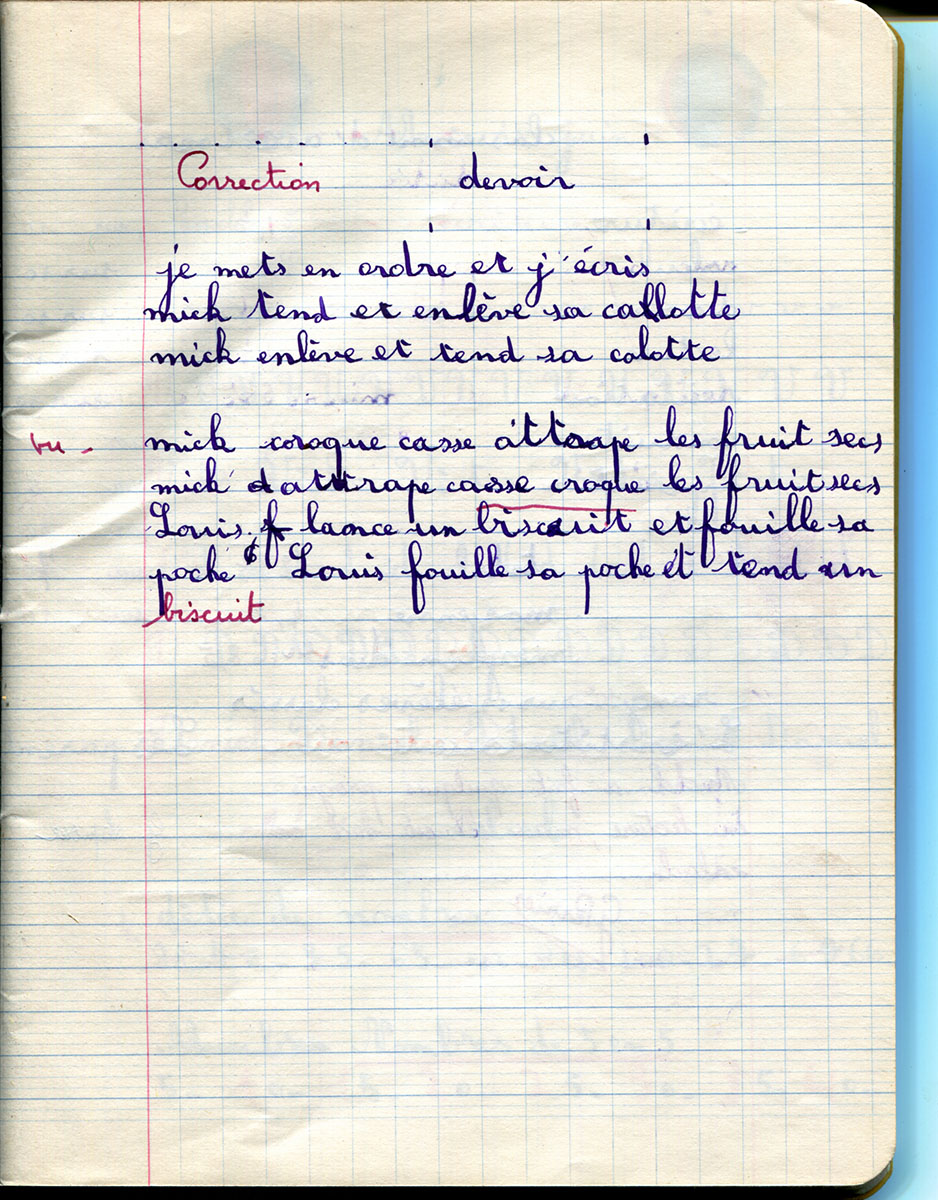 Correction devoir
je mets en ordre et j'écris
mick tend et enlève sa callotte
mick enlève et tend sa calotte
vu - mick croque casse attrape les fruit secs
mick attrape casse croque les fruit secs
Louis lance un biscuit et fouille sa
poche Louis fouille sa poche et tend un
biscuit